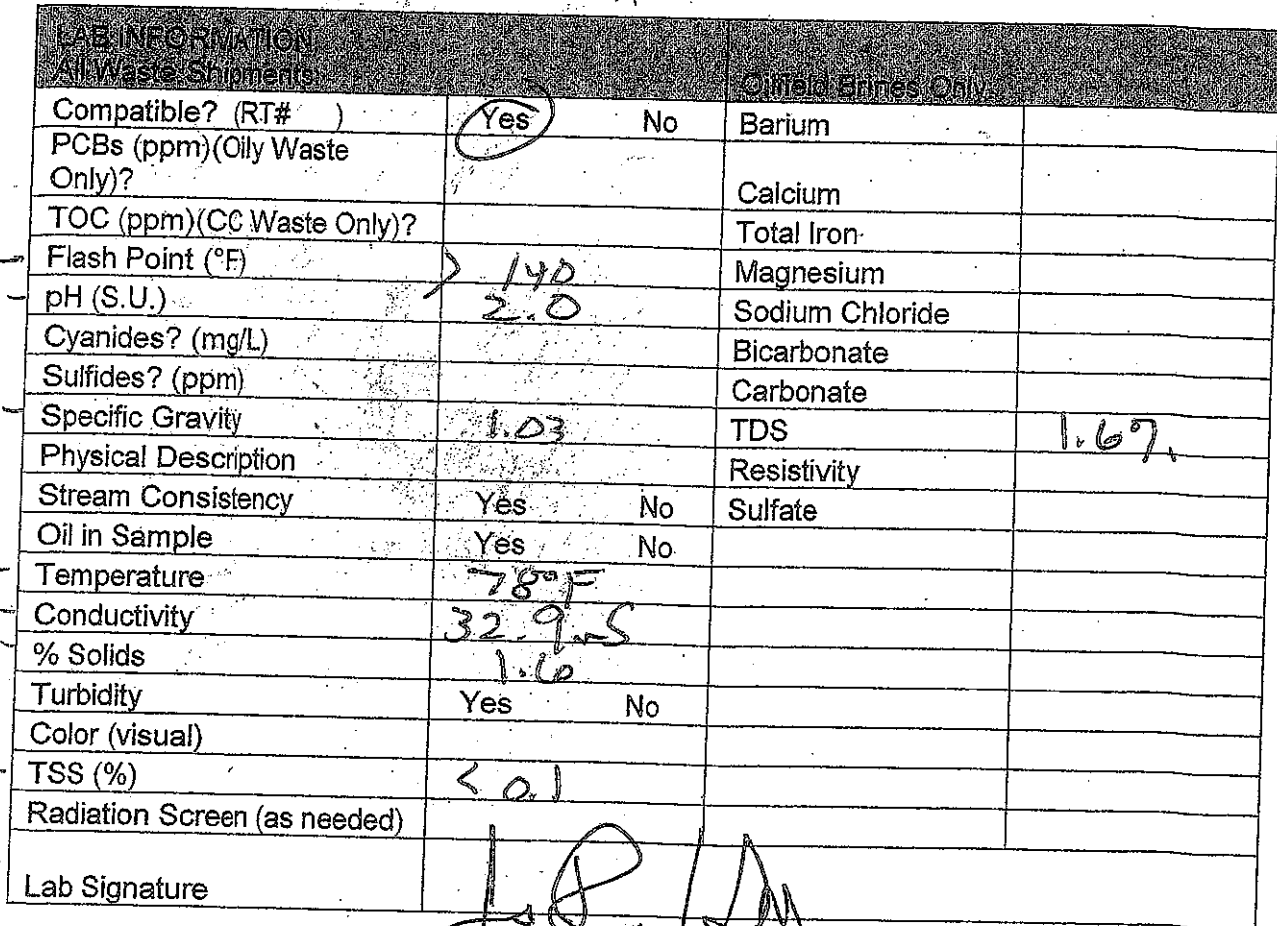 LAB INFORMATION
All Waste Shipments Oilfield Brines Only
Compatible? (RT# ) Yes No Barium
PCBs (ppm)(Oily Waste
Only)? Calcium
TOC (ppm)(CC Waste Only)? Total Iron
Flash Point (°F) > 140 Magnesium
pH (S.U.) 2.0 Sodium Chloride
Cyanides? (mg/L) Bicarbonate
Sulfides? (ppm) Carbonate
Specific Gravity 1.03 TDS 1.6%
Physical Description Resistivity
Stream Consistency Yes No Sulfate
Oil in Sample Yes No
Temperature 78°F
Conductivity 32.9 mS
% Solids 1.6
Turbidity Yes No
Color (visual)
TSS (%) < 0.1
Radiation Screen (as needed)
Lab Signature